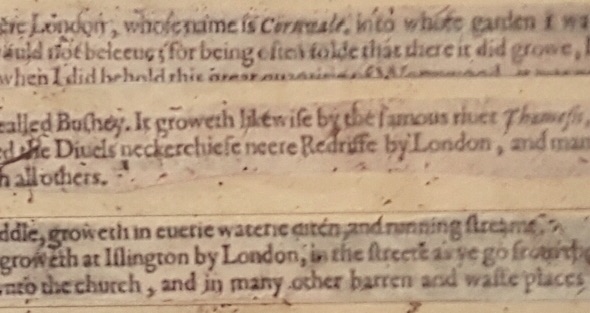 ere London, whose name is Cornwale, into whose garden I
not beleeue; for being often tolde that there it did growe,
when I did behold this great
called Bushey. It groweth likewise by the famous riuer Thamesis,
the Diuels neckerchiefe neere Redriffe by London, and
h all others.
ddle, groweth in euerie waterie and running streame,
groweth at Islington by London, in the streete as ye go from the
into the church, and in many other barren and waste places